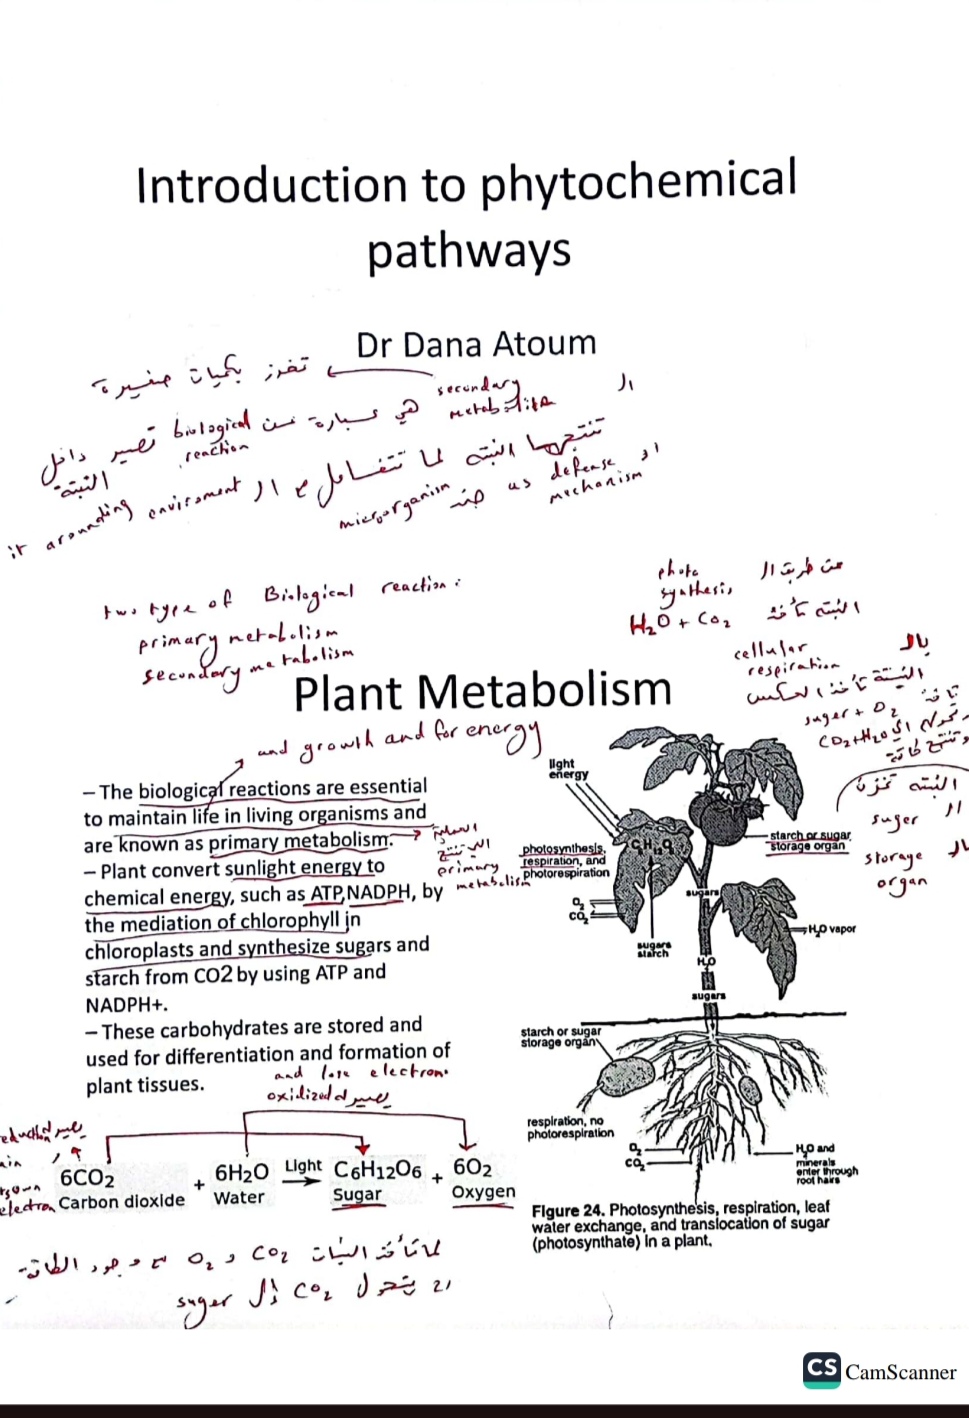 Introduction to phytochemical
pathways
Dr Dana Atoum
تفرز بكميات صغيرة
ال secondary metabolite هي عبارة عن biological reaction تصير داخل النبتة
تنتجها النبته لما تتفاعل مع ال enviroment
it
as defense mechanism ضد microorganism
two type of Biological reaction:
primary metabolism
secondary metabolism
عن طريق ال photo synthesis
النبته تأخذ H₂O + CO₂
بال cellular respiration
النبتة تأخذ العكس
تاخذ suger + O₂
CO₂+H₂O
وتنتج طاقة
النبته تخزن
ال suger
بال storage organ
Plant Metabolism
and growth and for energy
– The biological reactions are essential
to maintain life in living organisms and
are known as primary metabolism.
primary
metabolism
– Plant convert sunlight energy to
chemical energy, such as ATP,NADPH, by
the mediation of chlorophyll in
chloroplasts and synthesize sugars and
starch from CO2 by using ATP and
NADPH+.
– These carbohydrates are stored and
used for differentiation and formation of
plant tissues.
and lose electron.
يصير له oxidized
يصير له
electron
6CO2 + 6H2O Light C6H12O6 + 6O2
Carbon dioxide Water Sugar Oxygen
لما تأخذ النبات CO₂ و O₂ مع وجود الطاقة
يتحول CO₂ إلى suger
light
energy
photosynthesis,
respiration, and
photorespiration
O₂
CO₂
sugars
starch
starch or sugar
storage organ
sugars
H₂O vapor
H₂O
sugars
starch or sugar
storage organ
respiration, no
photorespiration
O₂
CO₂
H₂O and
minerals
enter through
root hairs
Figure 24. Photosynthesis, respiration, leaf
water exchange, and translocation of sugar
(photosynthate) in a plant.
CS CamScanner